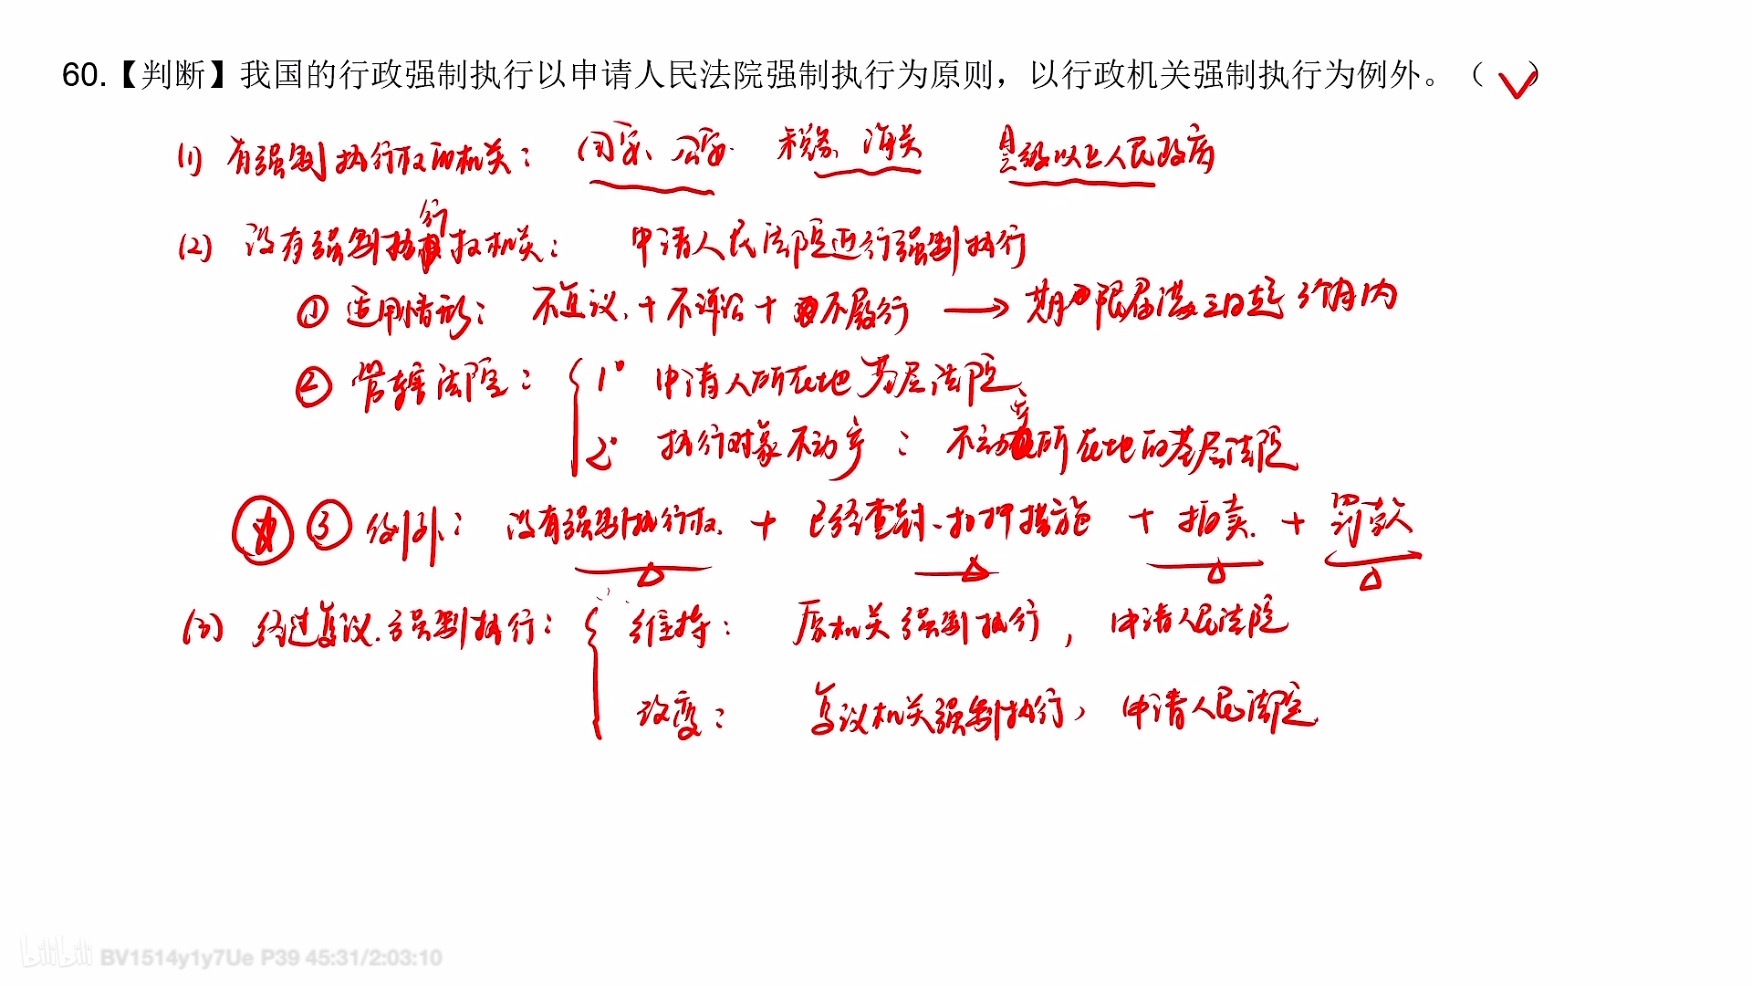 60.【判断】我国的行政强制执行以申请人民法院强制执行为原则，以行政机关强制执行为例外。（ √ ）
(1) 有强制执行权的机关： 国安、公安 税务、海关 县级以上人民政府
(2) 没有强制执行权机关： 申请人民法院进行强制执行
① 适用情形： 不复议 + 不诉讼 + 不履行 → 期限届满之日起 3个月内
② 管辖法院： { 1° 申请人所在地基层法院
2° 执行对象不动产： 不动产所在地的基层法院
③ 例外： 没有强制执行权 + 已经查封、扣押措施 + 拍卖 + 罚款
(3) 经过复议 强制执行： { 维持： 原机关强制执行，申请人民法院
改变： 复议机关强制执行，申请人民法院
bilibili BV1514y1y7Ue P39 45:31/2:03:10